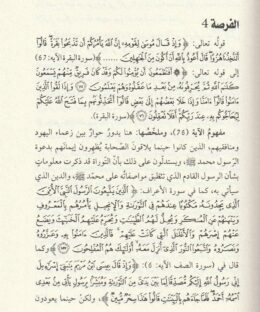 الفرصة 4
قوله تعالى: ﴿ وَإِذْ قَالَ مُوسَىٰ لِقَوْمِهِ إِنَّ اللَّهَ يَأْمُرُكُمْ أَن تَذْبَحُوا بَقَرَةً قَالُوا
أَتَتَّخِذُنَا هُزُوًا قَالَ أَعُوذُ بِاللَّهِ أَنْ أَكُونَ مِنَ الْجَاهِلِينَ ﴾ (سورة البقرة الآية: 67)
إلى قوله تعالى: ﴿ أَفَتَطْمَعُونَ أَن يُؤْمِنُوا لَكُمْ وَقَدْ كَانَ فَرِيقٌ مِّنْهُمْ يَسْمَعُونَ
كَلَامَ اللَّهِ ثُمَّ يُحَرِّفُونَهُ مِن بَعْدِ مَا عَقَلُوهُ وَهُمْ يَعْلَمُونَ وَإِذَا لَقُوا الَّذِينَ ءَامَنُوا
قَالُوا ءَامَنَّا وَإِذَا خَلَا بَعْضُهُمْ إِلَىٰ بَعْضٍ قَالُوا أَتُحَدِّثُونَهُم بِمَا فَتَحَ اللَّهُ عَلَيْكُمْ
لِيُحَاجُّوكُم بِهِ عِندَ رَبِّكُمْ أَفَلَا تَعْقِلُونَ ﴾ (سورة البقرة)
مفهوم الآية (76)، وملخصُها: هنا يدورُ حوارٌ بين زعماء اليهود
ومنافقيهم، الذين كانوا حينما يلاقون الصّحابة يُظهرون إيمانهم بدعوة
الرّسول محمد ﷺ، ويستدلّون على ذلك بأنّ التّوراة قد ذكرت معلوماتٍ
بشأن الرسول القادم الذي تتطابق مواصفاتُه على محمّد ﷺ، والدين الذي
سيأتي به، كما في سورة الأعراف: ﴿الَّذِينَ يَتَّبِعُونَ الرَّسُولَ النَّبِيَّ الْأُمِّيَّ
الَّذِي يَجِدُونَهُ مَكْتُوبًا عِندَهُمْ فِي التَّوْرَاةِ وَالْإِنجِيلِ يَأْمُرُهُم بِالْمَعْرُوفِ
وَيَنْهَاهُمْ عَنِ الْمُنكَرِ وَيُحِلُّ لَهُمُ الطَّيِّبَاتِ وَيُحَرِّمُ عَلَيْهِمُ الْخَبَائِثَ وَيَضَعُ
عَنْهُمْ إِصْرَهُمْ وَالْأَغْلَالَ الَّتِي كَانَتْ عَلَيْهِمْ فَالَّذِينَ ءَامَنُوا بِهِ وَعَزَّرُوهُ
وَنَصَرُوهُ وَاتَّبَعُوا النُّورَ الَّذِي أُنزِلَ مَعَهُ أُولَٰئِكَ هُمُ الْمُفْلِحُونَ﴾ وكما
قال في (سورة الصف الآية: 6): ﴿وَإِذْ قَالَ عِيسَى ابْنُ مَرْيَمَ يَا بَنِي إِسْرَائِيلَ
إِنِّي رَسُولُ اللَّهِ إِلَيْكُم مُّصَدِّقًا لِّمَا بَيْنَ يَدَيَّ مِنَ التَّوْرَاةِ وَمُبَشِّرًا بِرَسُولٍ يَأْتِي مِن بَعْدِي
اسْمُهُ أَحْمَدُ فَلَمَّا جَاءَهُم بِالْبَيِّنَاتِ قَالُوا هَٰذَا سِحْرٌ مُّبِينٌ﴾، ولكنْ حينما يعودون